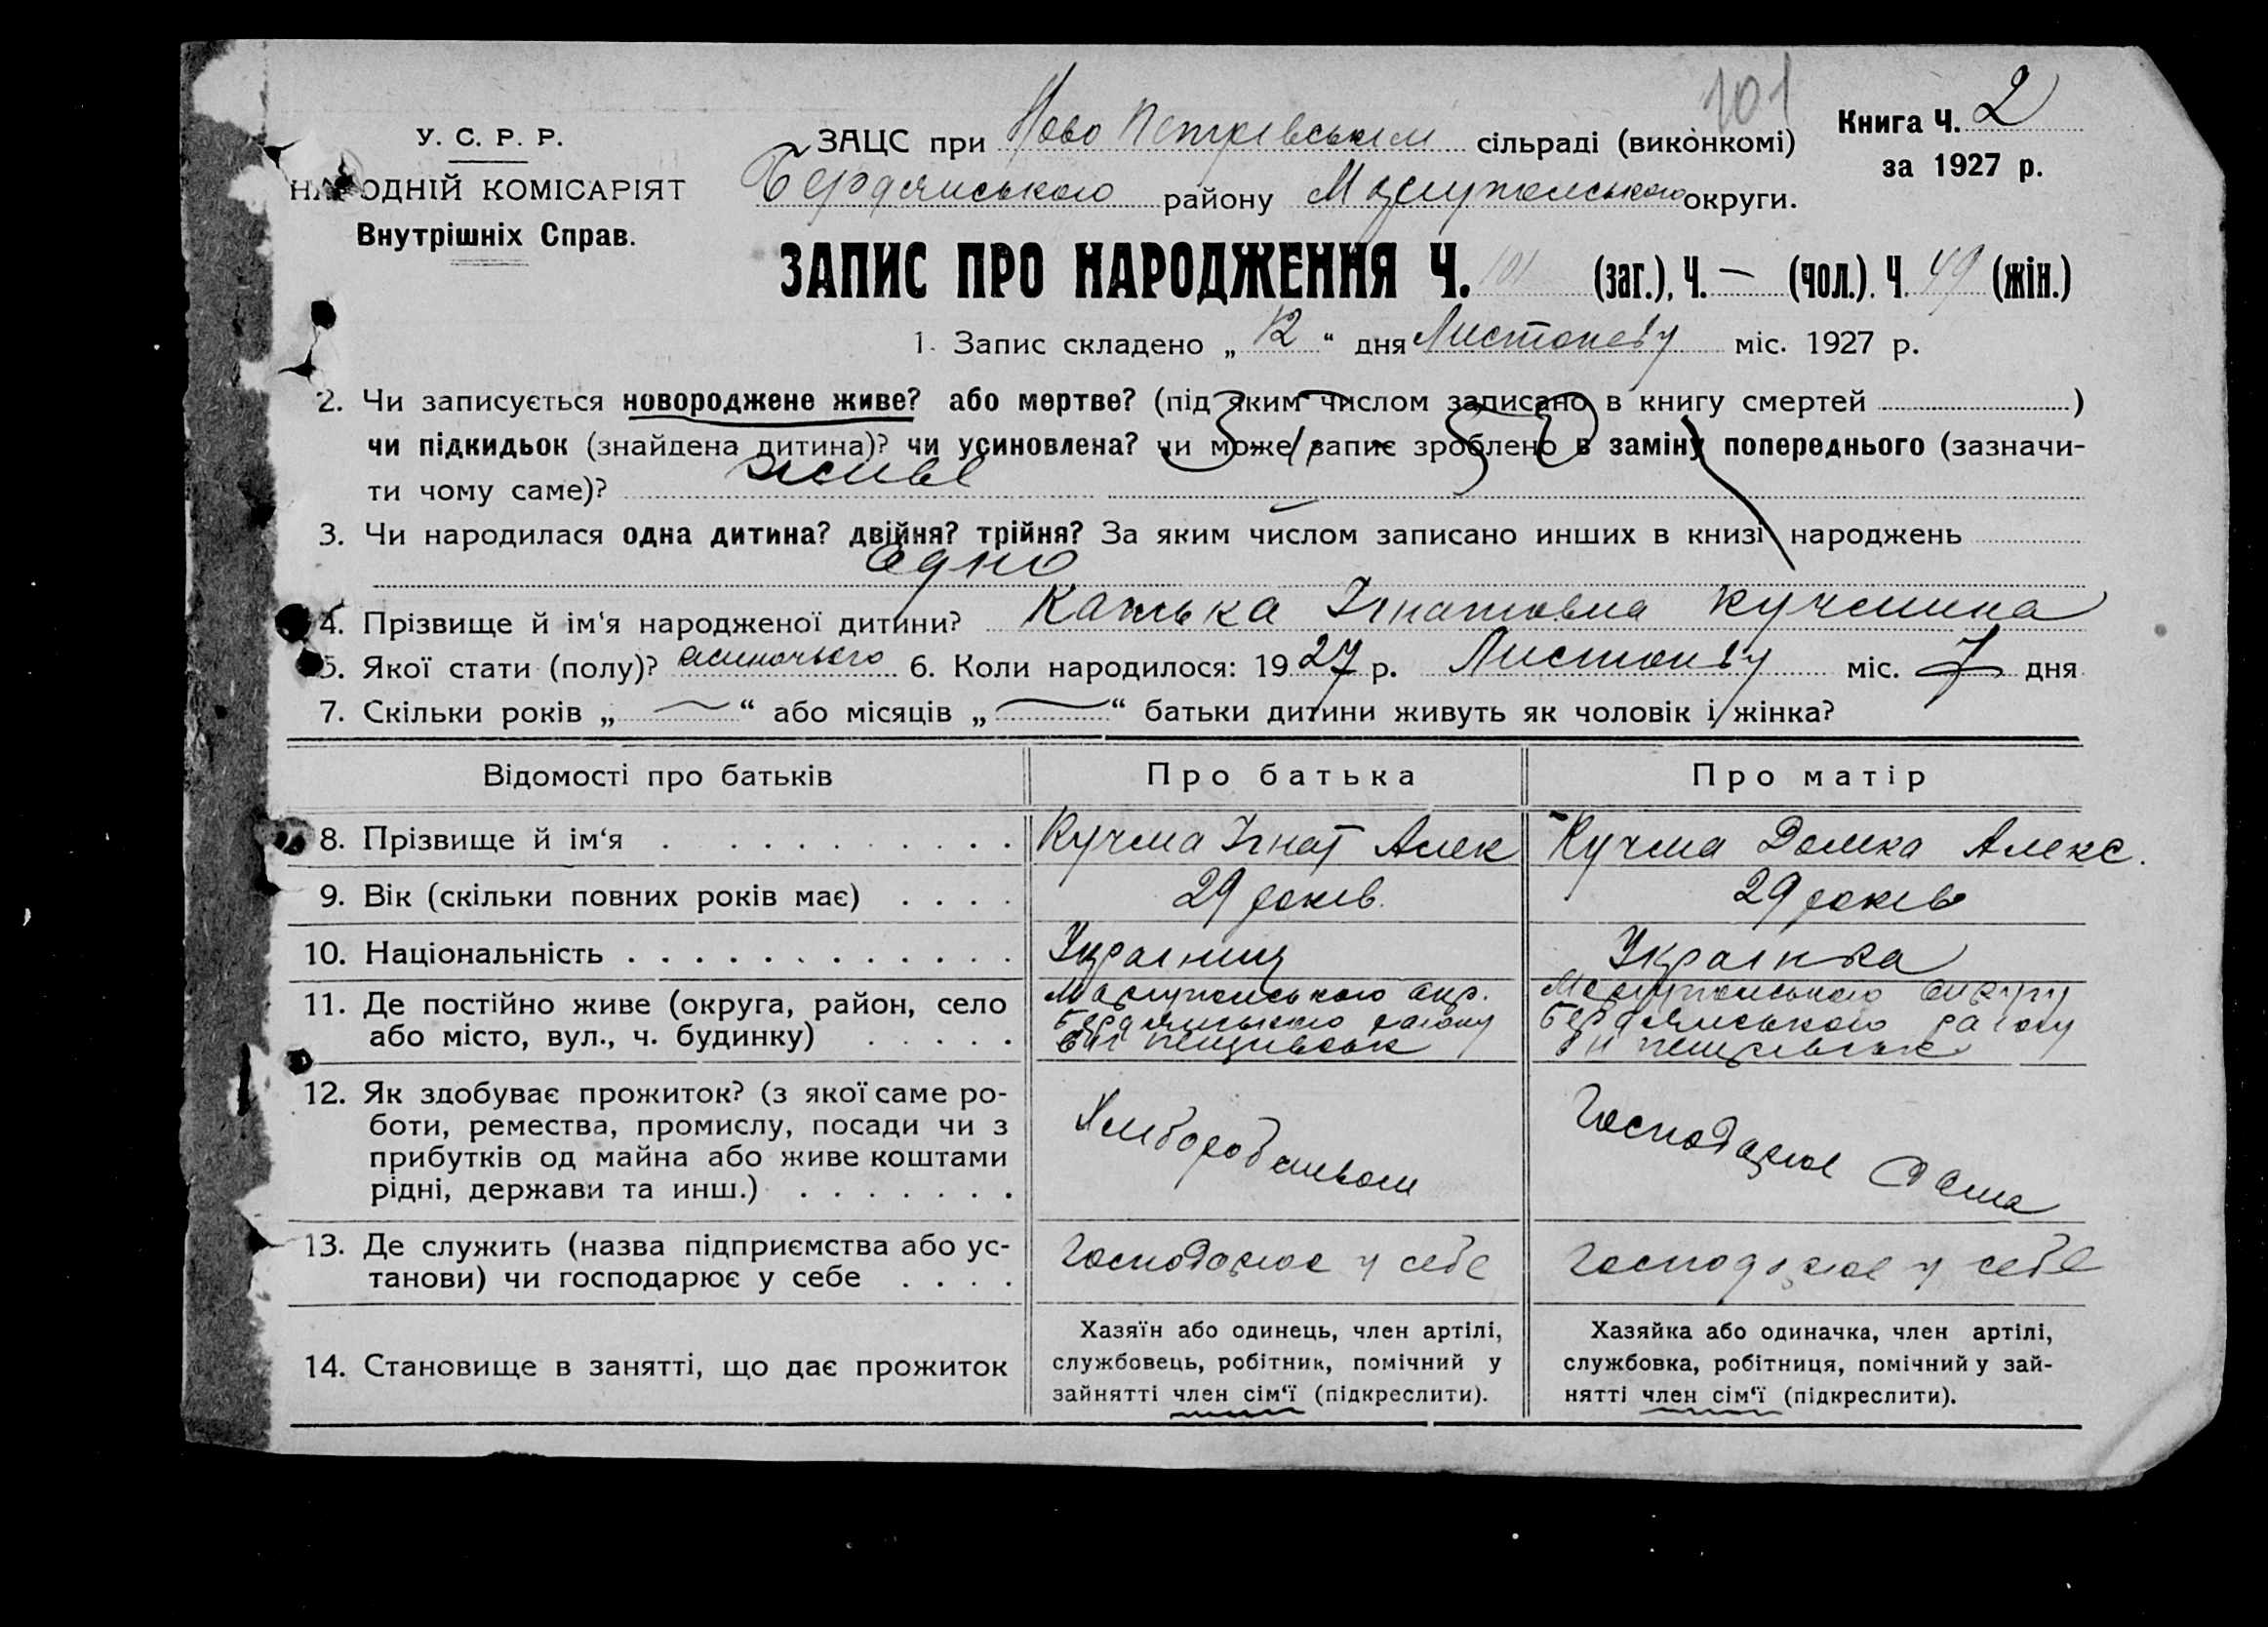 101
У. С. Р. Р.
НАРОДНІЙ КОМІСАРІЯТ
Внутрішніх Справ.
ЗАЦС при Ново Петрівським сільраді (виконкомі)
Бердянського району Маріупольського округи.
Книга Ч. 2
за 1927 р.
ЗАПИС ПРО НАРОДЖЕННЯ Ч. 101 (заг.), Ч. — (чол.). Ч. 49 (жін.)
1. Запис складено „ 12 “ дня Листопаду міс. 1927 р.
2. Чи записується новороджене живе? або мертве? (під яким числом записано в книгу смертей )
чи підкидьок (знайдена дитина)? чи усиновлена? чи може запис зроблено в заміну попереднього (зазначи-
ти чому саме)? живе
3. Чи народилася одна дитина? двійня? трійня? За яким числом записано инших в книзі народжень
одно
4. Прізвище й ім‘я народженої дитини? Катька Ігнатовна Кучмина
5. Якої стати (полу)? жиночього 6. Коли народилося: 1927 р. Листопаду міс. 7 дня
7. Скільки років „ — “ або місяців „ — “ батьки дитини живуть як чоловік і жінка?
Відомості про батьків Про батька Про матір
8. Прізвище й ім‘я Кучма Ігнат Алек Кучма Домка Алекс.
9. Вік (скільки повних років має) 29 років. 29 років
10. Національність Українец Українка
11. Де постійно живе (округа, район, село Маріупольського окр. Маріупольського округу
або місто, вул., ч. будинку) Бердянського району Бердянського району
12. Як здобуває прожиток? (з якої саме ро-
боти, ремества, промислу, посади чи з
прибутків од майна або живе коштами
рідні, держави та инш.)
Хліборобством
Господарює дома
13. Де служить (назва підприємства або ус-
танови) чи господарює у себе Господарює у себе Господарює у себе
14. Становище в занятті, що дає прожиток
Хазяїн або одинець, член артілі,
службовець, робітник, помічний у
зайнятті член сім‘ї (підкреслити).
Хазяйка або одиначка, член артілі,
службовка, робітниця, помічний у зай-
нятті член сім‘ї (підкреслити).